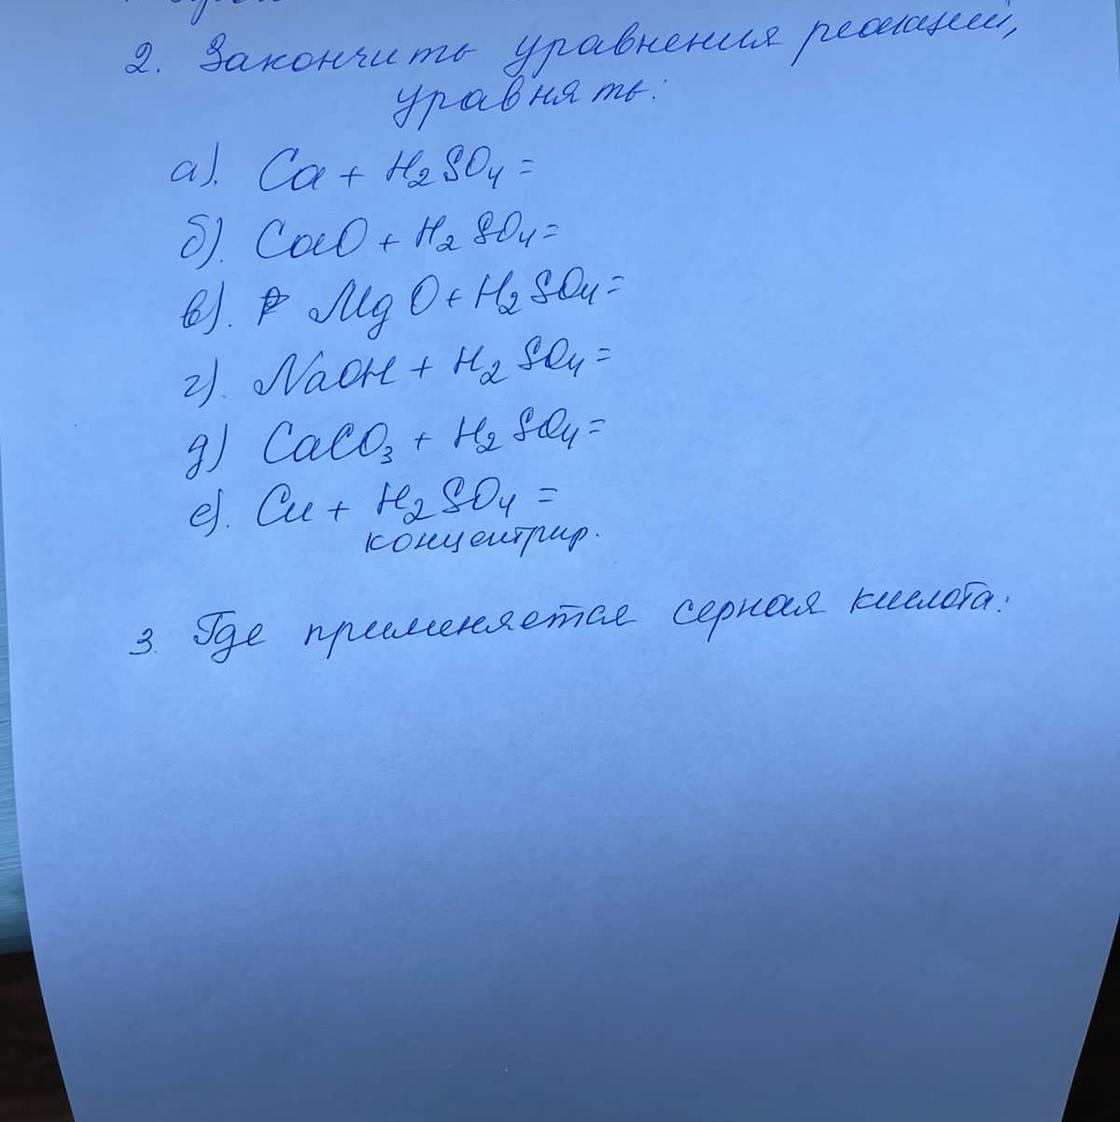 2. Закончить уравнения реакций,
уравнять:
а). Ca + H₂SO₄ =
б). CaO + H₂SO₄ =
в). MgO + H₂SO₄ =
г). NaOH + H₂SO₄ =
д) CaCO₃ + H₂SO₄ =
е). Cu + H₂SO₄ =
концентрир.
3. Где применяется серная кислота: